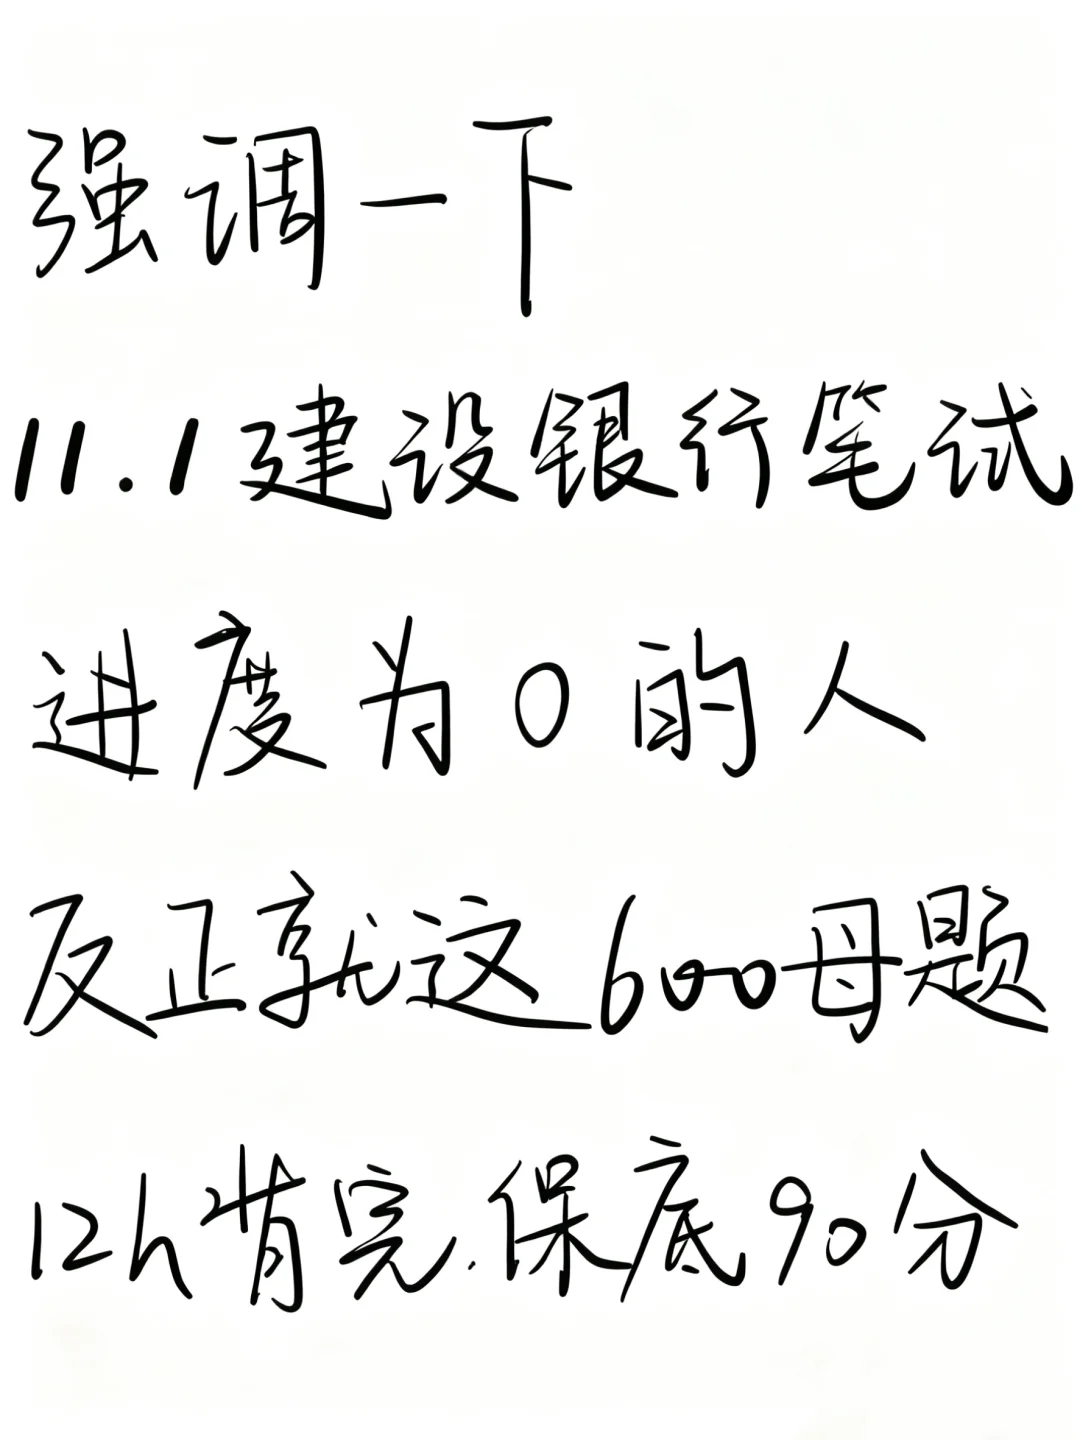 强调一下
11.1建设银行笔试
进度为0的人
反正就这600母题
12h背完.保底90分